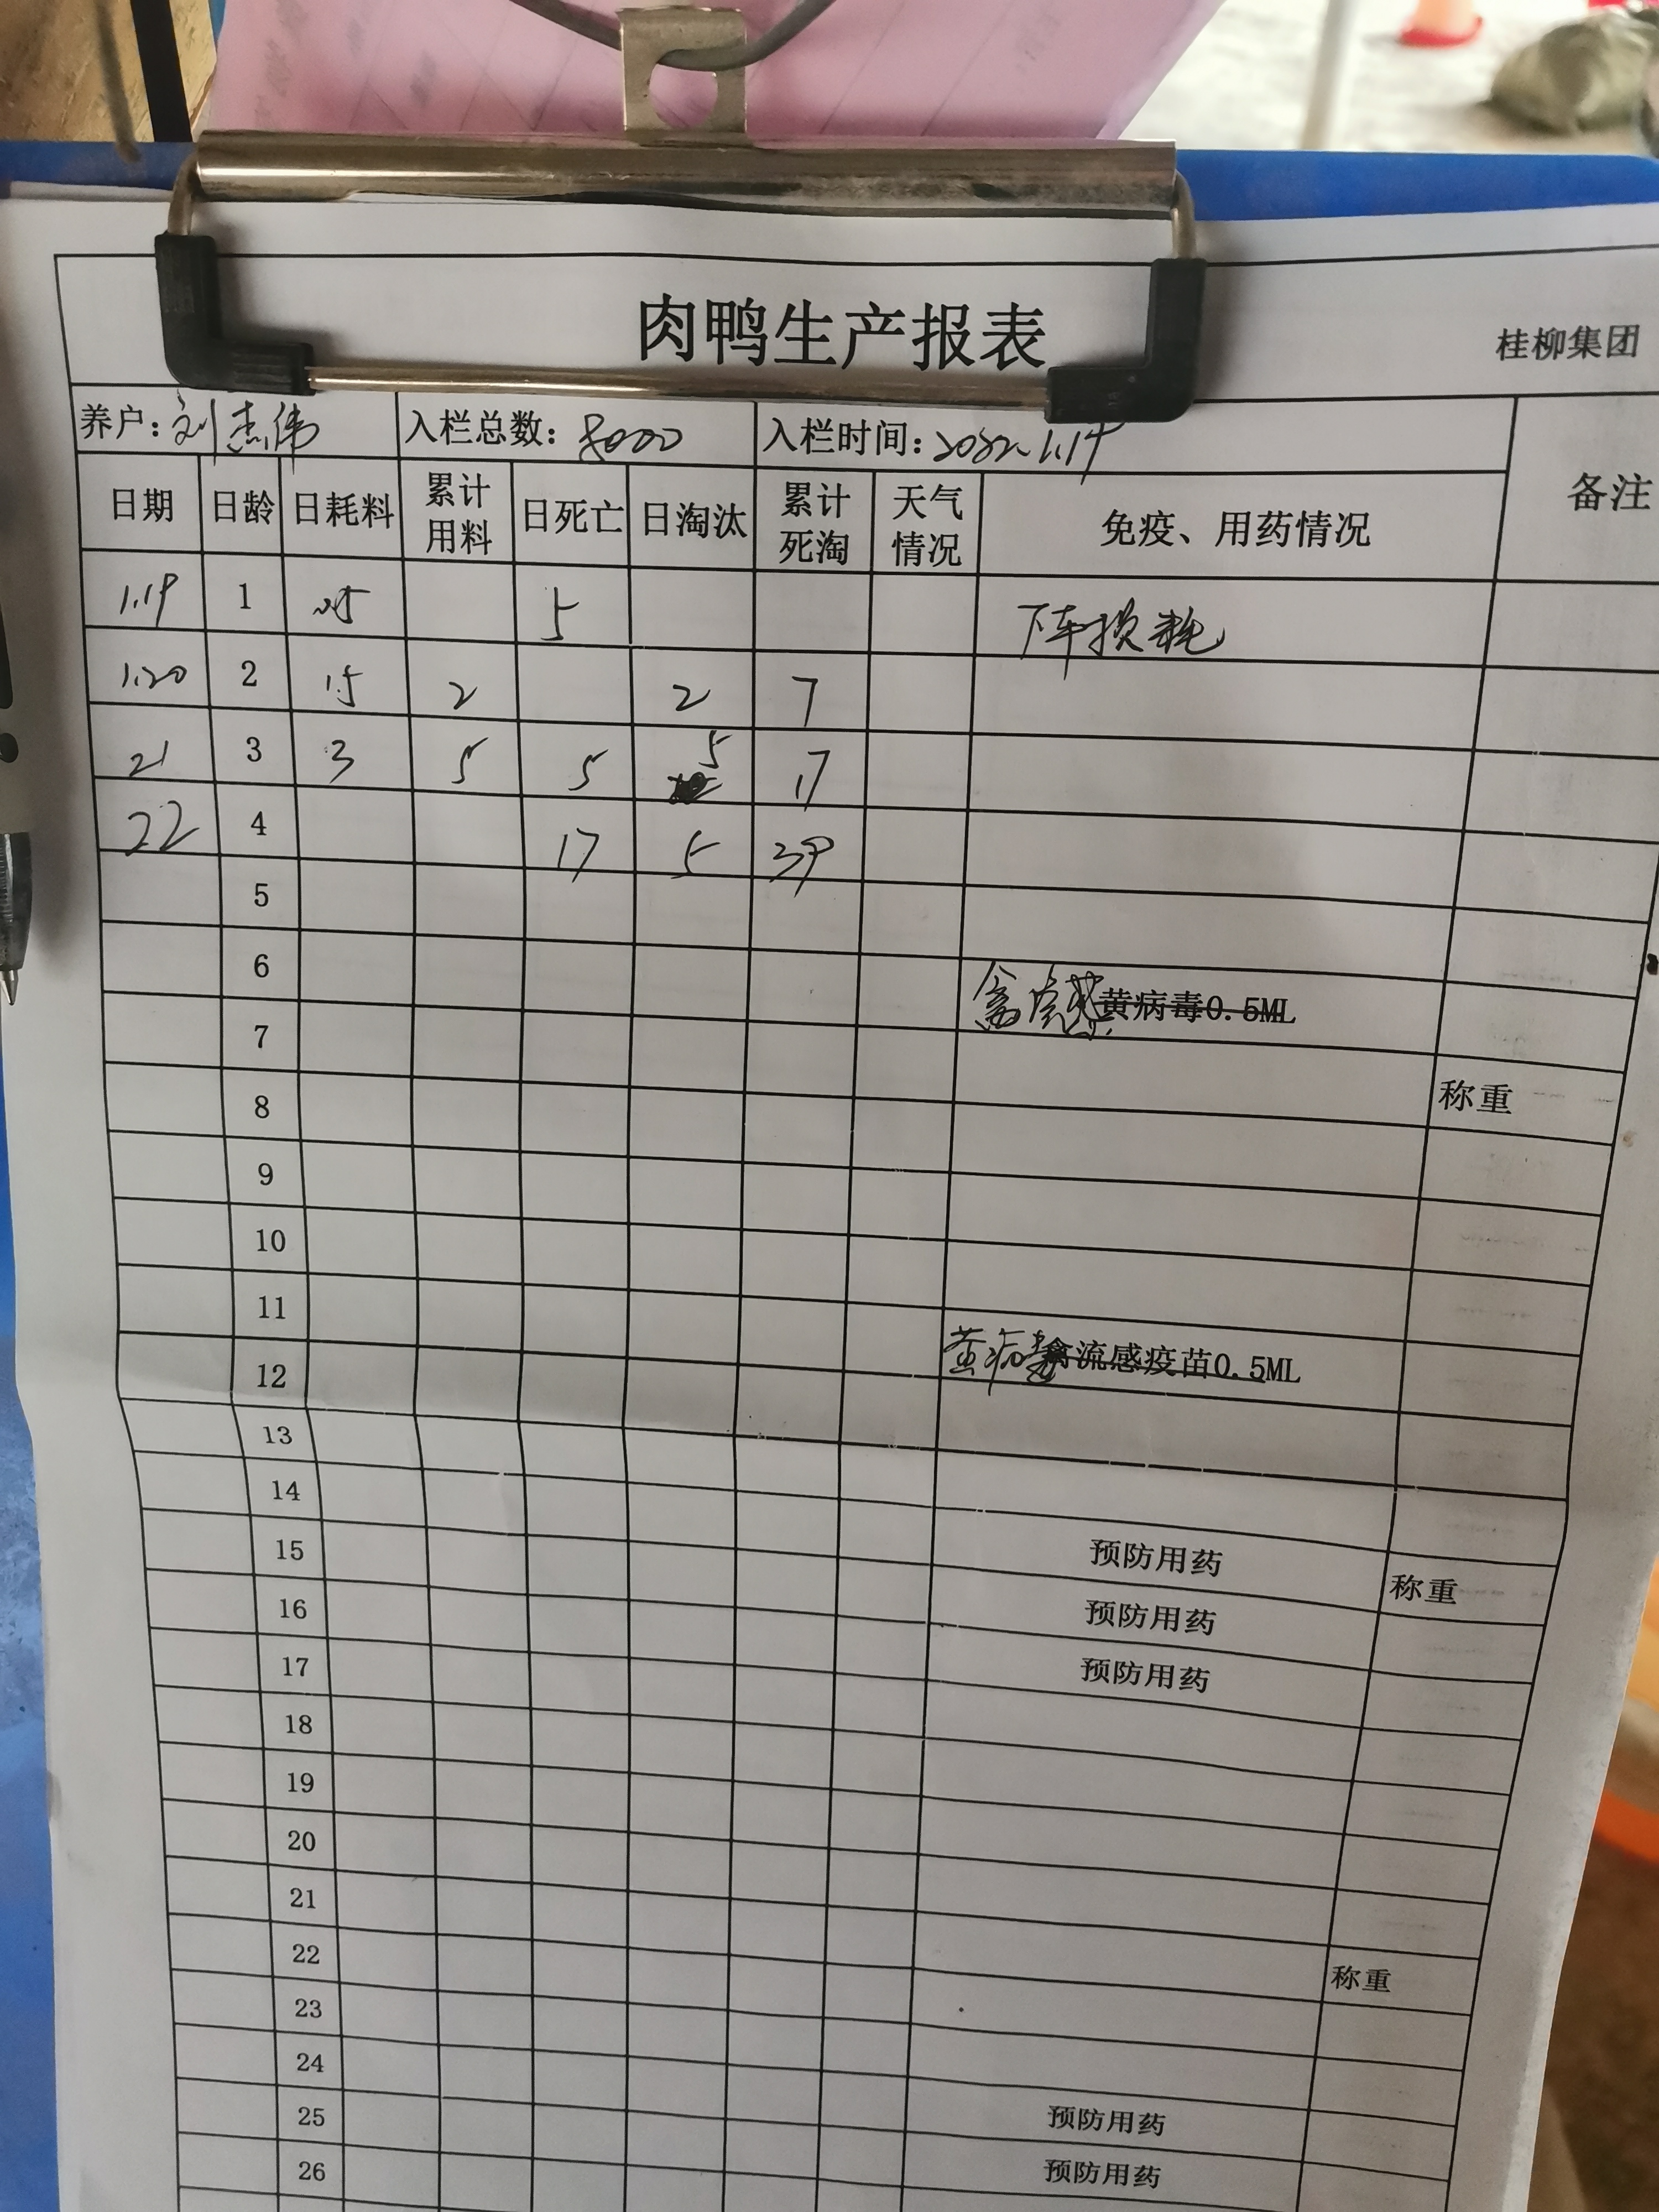 肉鸭生产报表
桂柳集团
养户：刘杰伟 入栏总数：8000 入栏时间：2022.1.19 备注
日期 日龄 日耗料 累计用料 日死亡 日淘汰 累计死淘 天气情况 免疫、用药情况
1.19 1 5 下车损耗
1.20 2 1.5 2 2 7
21 3 3 5 5 5 17
22 4 17 5 39
5
6 禽流感黄病毒0.5ML
7
8 称重
9
10
11
12 黄病毒禽流感疫苗0.5ML
13
14
15 预防用药 称重
16 预防用药
17 预防用药
18
19
20
21
22 称重
23
24
25 预防用药
26 预防用药